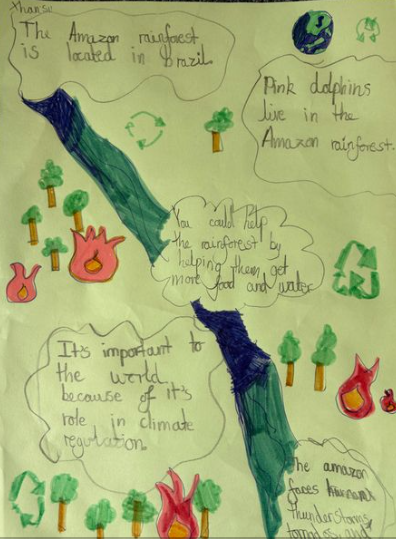 The Amazon rainforest
is located in Brazil
Pink dolphins
live in the
Amazon rainforest.
You could help
the rainforest by
helping them get
more food and water
It's important to
the world
because of it's
role in climate
regulation.
The amazon
faces
thunderstorms,
tornados, and